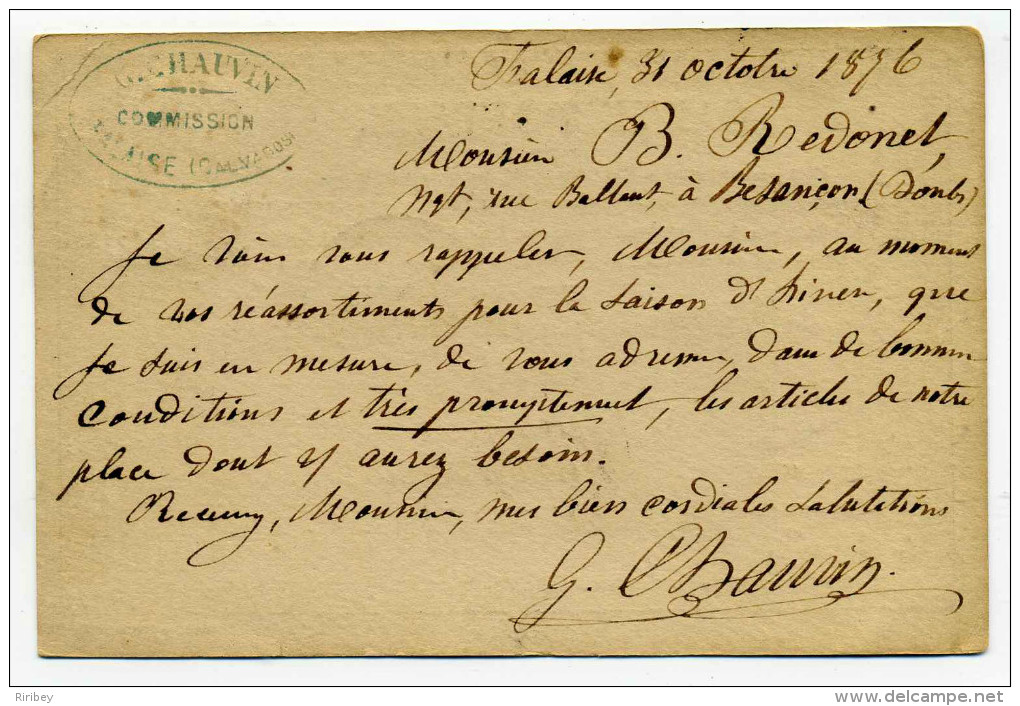 G. CHAUVIN
COMMISSION
FALAISE (CALVADOS)
Falaise, 31 octobre 1876
Monsieur B. Redonet,
Ngt, rue Battant, à Besançon (Doubs)
Je viens vous rappeler, Monsieur, au moment
de vos réassortiments pour la saison d'hiver, que
je suis en mesure, de vous adresser, dans de bonnes
conditions et très promptement, les articles de notre
place dont v/ aurez besoin.
Recevez, Monsieur, mes bien cordiales salutations
G. Chauvin.
Ribrey
delcampe.net